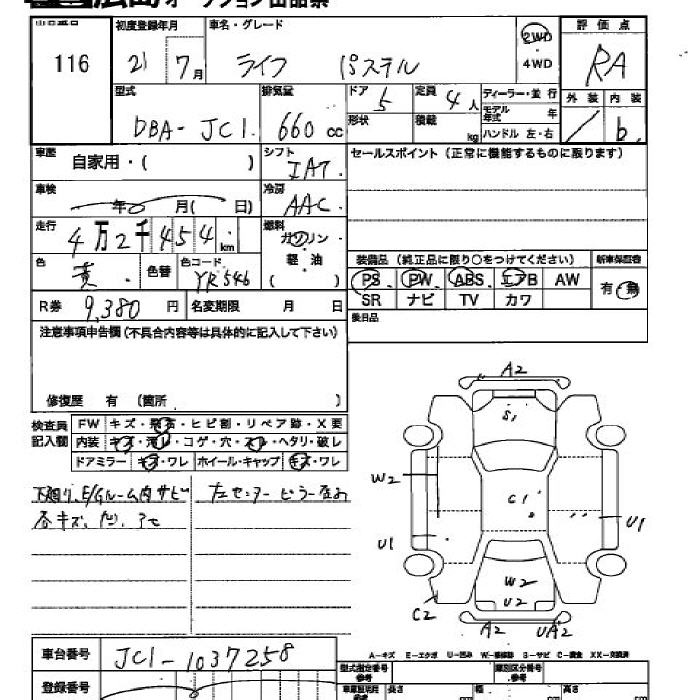 広島 オークション出品票
出品番号 初度登録年月 車名・グレード 評価点
116 21 7月 ライフ パステル 2WD 4WD RA
型式 排気量 ドア 定員 ディーラー・並行 外装 内装
DBA-JC1 660 cc 5 4人 モデル年式 年 / b
形状 積載 kg ハンドル 左・右
車歴 シフト セールスポイント(正常に機能するものに限ります)
自家用・( ) IAT
車検 冷房
年 月( 日) AAC
走行 燃料
4万2千454km ガソリン
色 色替 色コード 軽油 装備品(純正品に限り○をつけてください) 新車保証書
黄 YR546 ( ) PS PW ABS エアB AW 有・無
R券 9,380円 名変期限 月 日 SR ナビ TV カワ
後日品
注意事項申告欄(不具合内容等は具体的に記入して下さい)
修復歴 有 (箇所 )
検査員記入欄 FW キズ・飛石・ヒビ割・リペア跡・X要
内装 キズ・汚レ・コゲ・穴・スレ・ヘタリ・破レ
ドアミラー キズ・ワレ ホイール・キャップ キズ・ワレ
下廻り、E/Gルーム内サビ 左センターピラー
各キズ、凹、アセ
A2
S1
W2
C1
U1
U1
W2
U2
C2
A2 UA2
A-キズ E-エクボ U-凹み W-補修跡 S-サビ C-腐食 XX-交換済
車台番号 JC1-1037258 型式指定番号 参考 類別区分番号 参考
登録番号 長さ cm 幅 cm 高さ cm